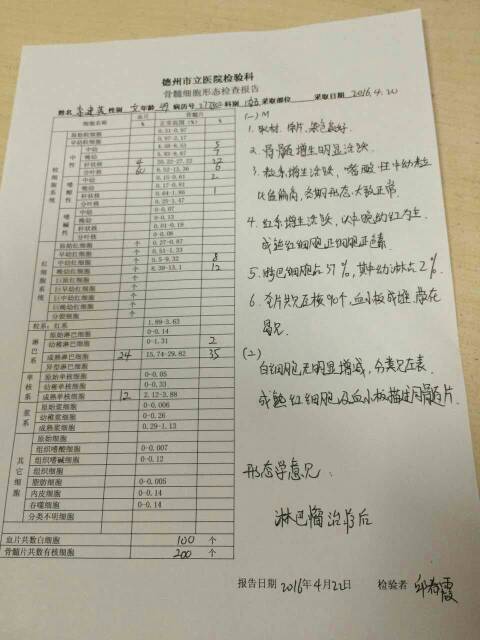 德州市立医院检验科
骨髓细胞形态检查报告
姓名 性别 女 年龄 病历号 科别 采取部位 采取日期 2016.4.20
细胞名称 血片 % 骨髓片 正常范围(%) %
粒细胞系统
原始粒细胞 0.31-0.97
早幼粒细胞
中性 中幼 5
晚幼 7
杆状核 4 27
分叶核 60 6
嗜酸性 中幼 2
晚幼 0.17-0.81
杆状核 1
分叶核 0.25-1.47
嗜碱性 中幼 0-0.07
晚幼 0-0.13
杆状核 0.01-0.19
分叶核 0-0.08
红细胞系统
原始红细胞 个 0.27-0.87
早幼红细胞 个 0.51-1.33
中幼红细胞 个 8
晚幼红细胞 个 12
巨原红细胞 个
巨早幼红细胞 个
巨中幼红细胞 个
巨晚幼红细胞 个
分裂细胞 个
粒系:红系 1.89-3.63
淋巴系
原始淋巴细胞 0-0.14
幼稚淋巴细胞 0-1.31 2
成熟淋巴细胞 24 15.74-29.82 35
异型淋巴细胞
单核系
原始单核细胞 0-0.05
幼稚单核细胞 0-0.33
成熟单核细胞 12 2.12-3.88
浆系
原始浆细胞 0-0.006
幼稚浆细胞 0-0.26
成熟浆细胞 0.29-1.13
其它细胞
原始细胞
组织嗜酸细胞 0-0.007
组织嗜碱细胞 0-0.12
组织细胞
脂肪细胞 0-0.005
内皮细胞 0-0.14
吞噬细胞 0-0.14
分类不明细胞
血片共数白细胞 100 个
骨髓片共数有核细胞 200 个
(一) M
1. 取材、涂片、染色良好。
2. 骨髓增生明显活跃
3. 粒系增生活跃,嗜酸性中幼粒
比值偏高,各期形态大致正常。
4. 红系增生活跃,以中晚幼红为主,
成熟红细胞正细胞正色素
5. 淋巴细胞占37%,其中幼淋占2%。
6. 全片共见巨核90个,血小板成堆散在
易见。
(二)
白细胞无明显增减,分类见左表
成熟红细胞及血小板描述同髓片。
形态学意见:
淋巴瘤治疗后
报告日期 2016年4月22日 检验者